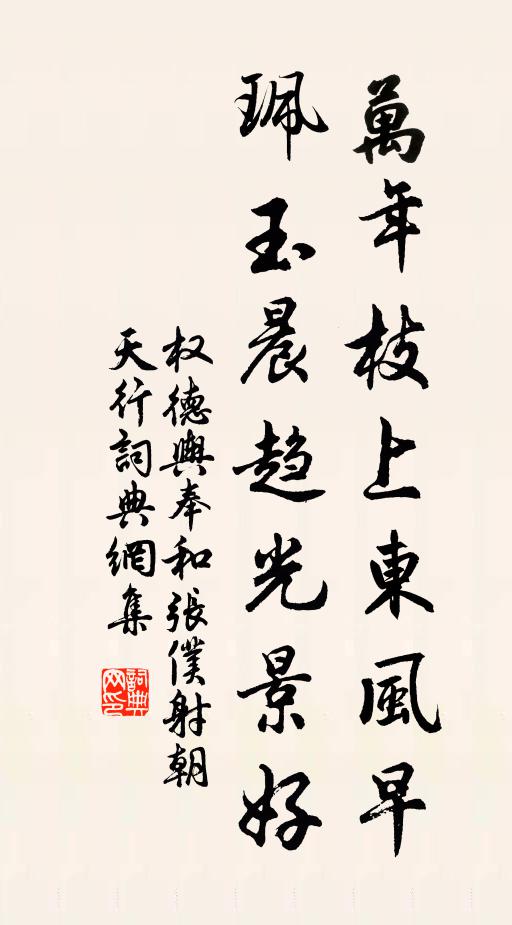 萬年枝上東風早
珮玉晨趋光景好
权德輿奉和張僕射朝
天行詞典網集
詞典
网印